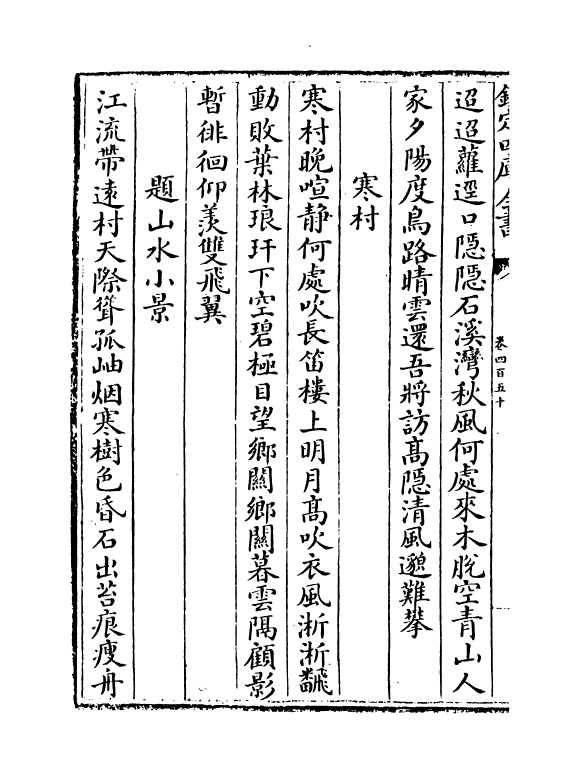 欽定四庫全書
卷四百五十
迢迢蘿逕口隱隱石溪灣秋風何處來木脫空青山人
家夕陽度鳥路晴雲還吾將訪髙隱清風邈難攀
寒村
寒村晚喧静何處吹長笛樓上明月髙吹衣風淅淅飜
動敗葉林琅玕下空碧極目望鄉關鄉關暮雲隅顧影
暫徘徊仰羨雙飛翼
題山水小景
江流帶遠村天際聳孤岫烟寒樹色昏石出苔痕瘦舟